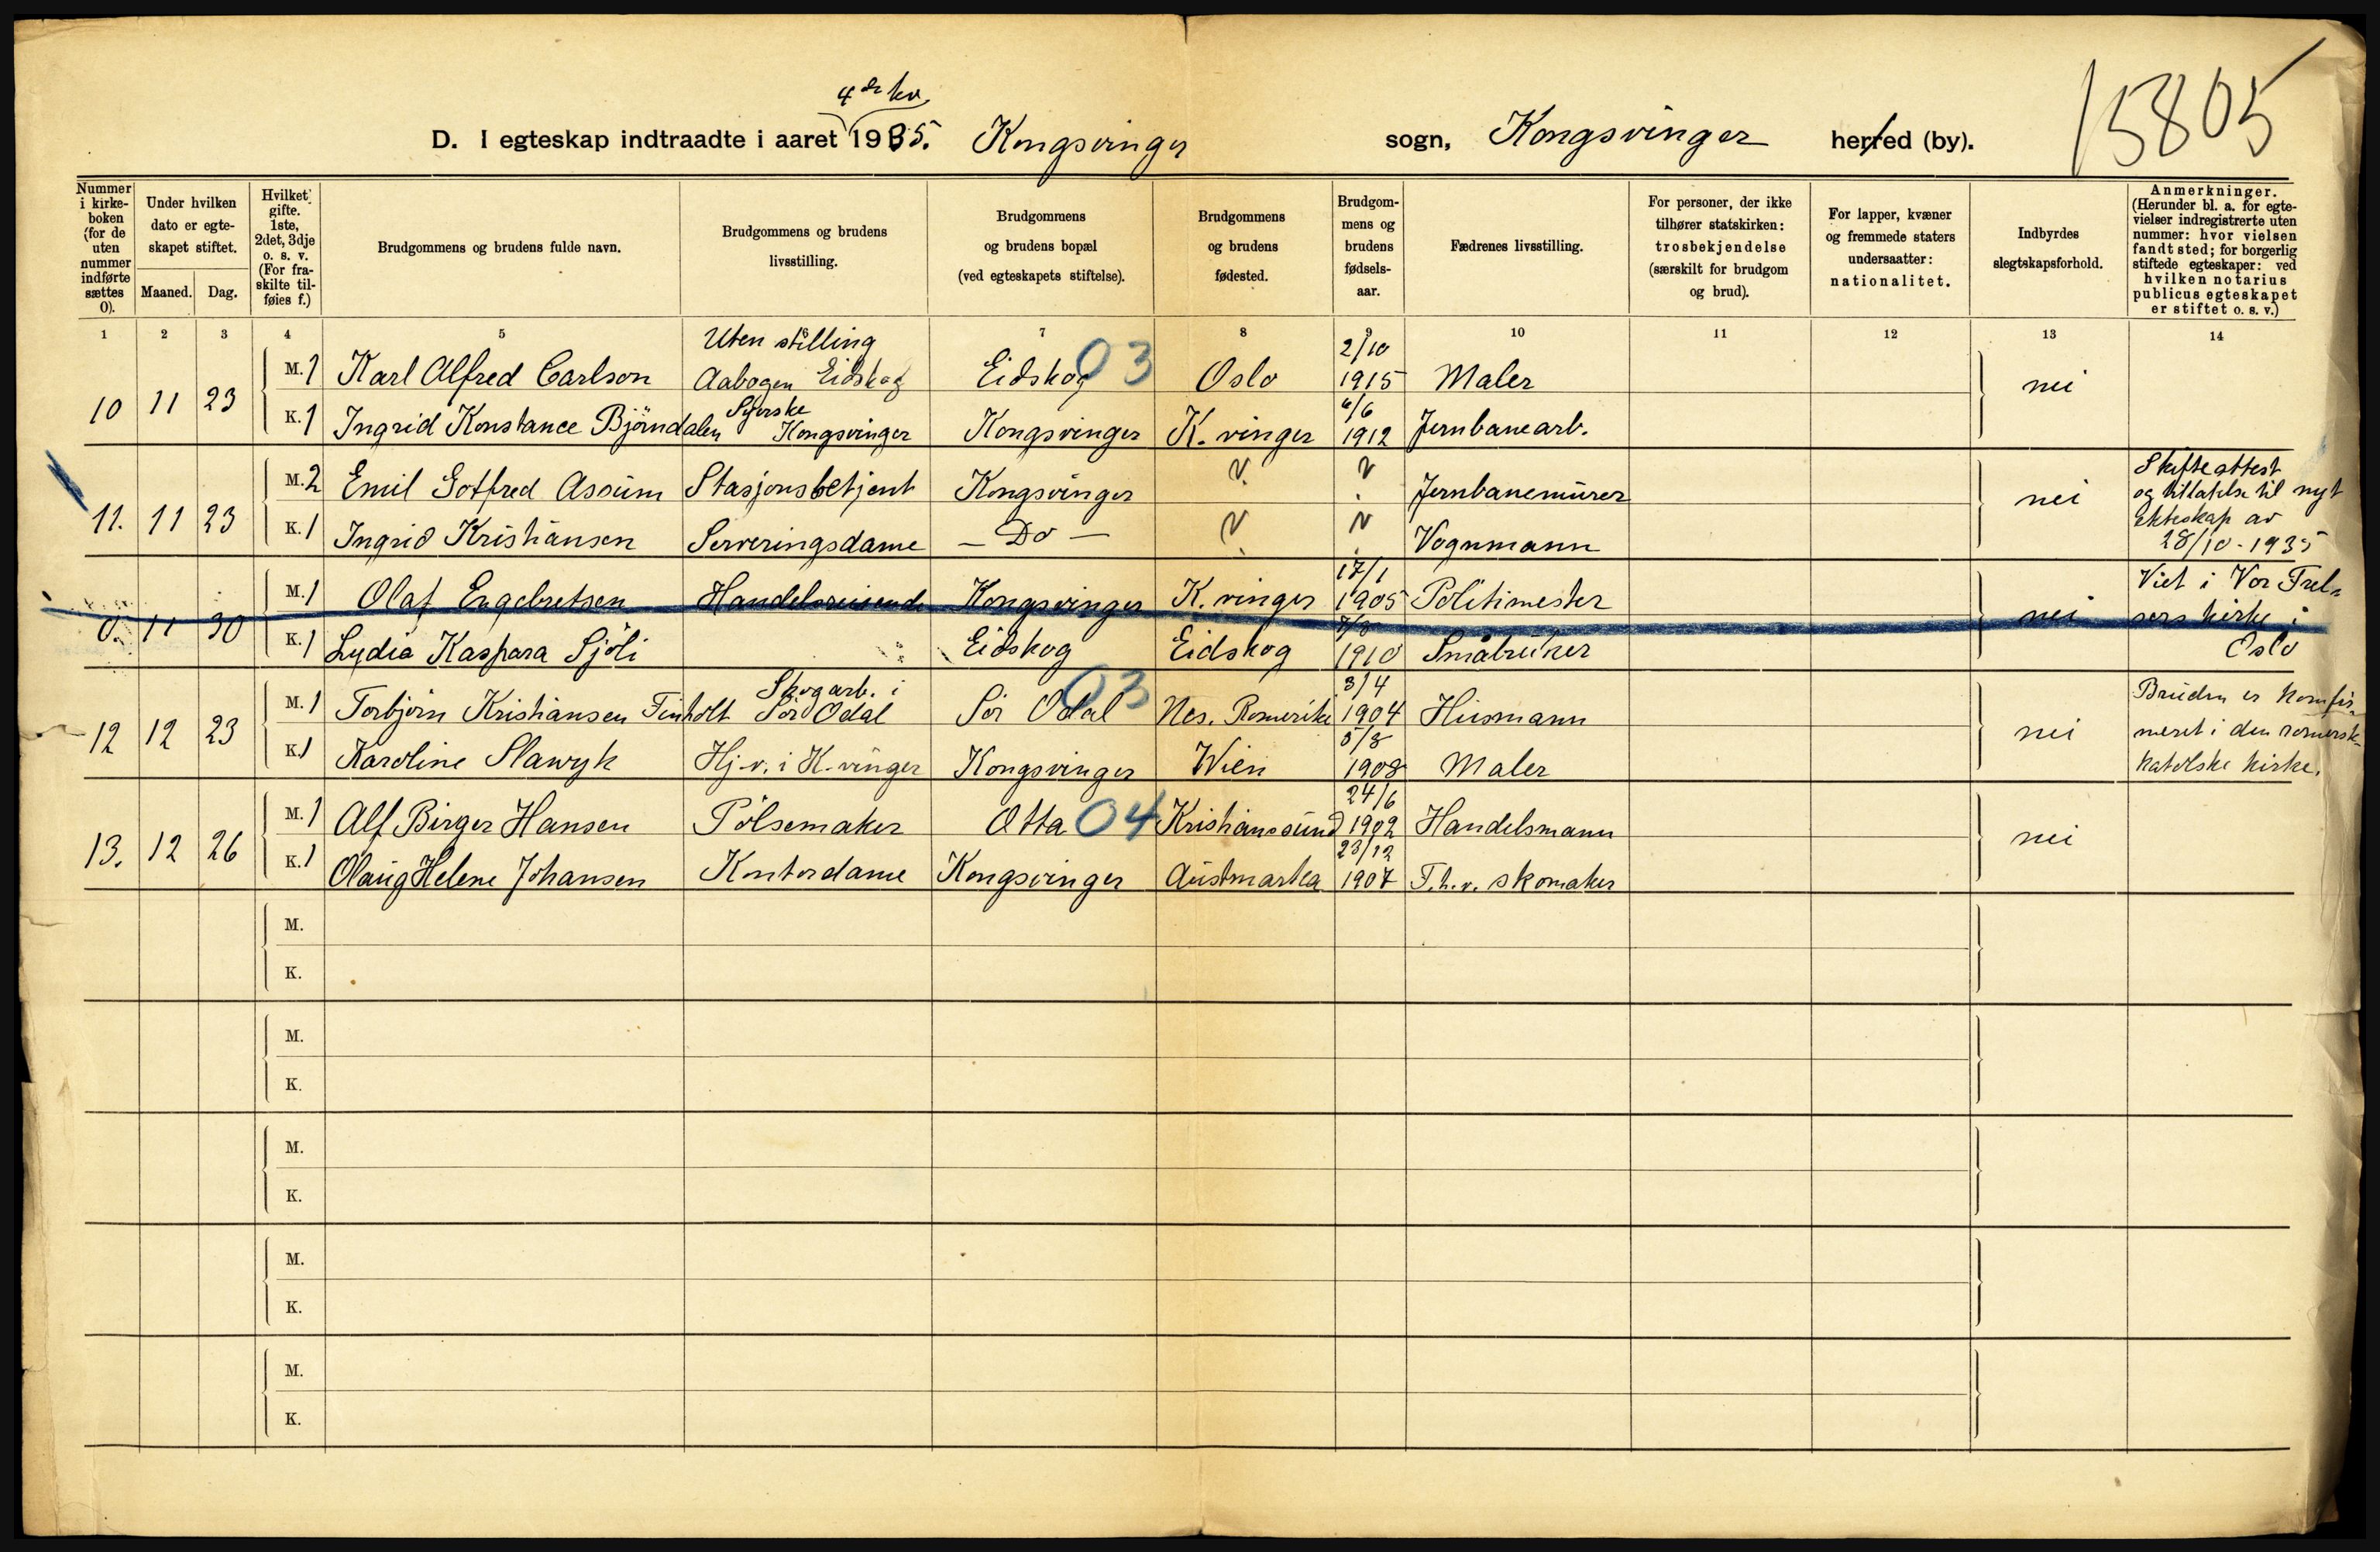 4de kv.
D. I egteskap indtraadte i aaret 1935. Kongsvinger sogn, Kongsvinger herred (by).
15805
Nummer i kirkeboken (for de uten nummer indførte sættes 0).
Under hvilken dato er egteskapet stiftet.
Maaned. Dag.
Hvilket gifte. 1ste, 2det, 3dje o. s. v. (For fraskilte tilføies f.)
Brudgommens og brudens fulde navn.
Brudgommens og brudens livsstilling.
Brudgommens og brudens bopæl (ved egteskapets stiftelse).
Brudgommens og brudens fødested.
Brudgommens og brudens fødselsaar.
Fædrenes livsstilling.
For personer, der ikke tilhører statskirken: trosbekjendelse (særskilt for brudgom og brud).
For lapper, kvæner og fremmede staters undersaatter: nationalitet.
Indbyrdes slegtskapsforhold.
Anmerkninger. (Herunder bl. a. for egtevielser indregistrerte uten nummer: hvor vielsen fandt sted; for borgerlig stiftede egteskaper: ved hvilken notarius publicus egteskapet er stiftet o. s. v.)
1 2 3 4 5 6 7 8 9 10 11 12 13 14
10 11 23 M. 1 Karl Alfred Carlson Uten stilling Aabogen Eidskog Eidskog 03 Oslo 2/10 1915 Maler nei
K. 1 Ingrid Konstance Björndalen Syerske Kongsvinger Kongsvinger K.vinger 6/6 1912 Jernbanearb.
11. 11 23 M. 2 Emil Gotfred Assum Stasjonsbetjent Kongsvinger ? ? Jernbanemurer nei Skifteattest og tillatelse til nyt ekteskap av 28/10-1935
K. 1 Ingrid Kristiansen Serveringsdame — Do — ? ? Vognmann
0. 11 30 M. 1 Olaf Engebretsen Handelsreisende Kongsvinger K.vinger 17/1 1905 Politimester nei Viet i Vor Frelsers kirke i Oslo
K. 1 Lydia Kaspara Sjöli Eidskog Eidskog 1910 Småbruker
12 12 23 M. 1 Torbjörn Kristiansen Finholt Skogarb. i Sör Odal Sör Odal 03 Nes. Romerike 3/4 1904 Husmann nei Bruden er konfirmeret i den romersk-katolske kirke.
K. 1 Karoline Slawyk Hj.v. i K.vinger Kongsvinger Wien 5/8 1908 Maler
13. 12 26 M. 1 Alf Birger Hansen Pölsemaker Otta 04 Kristianssund 24/6 1902 Handelsmann nei
K. 1 Olaug Helene Johansen Kontordame Kongsvinger Austmarka 23/12 1907 F.h.v. skomaker
M.
K.
M.
K.
M.
K.
M.
K.
M.
K.